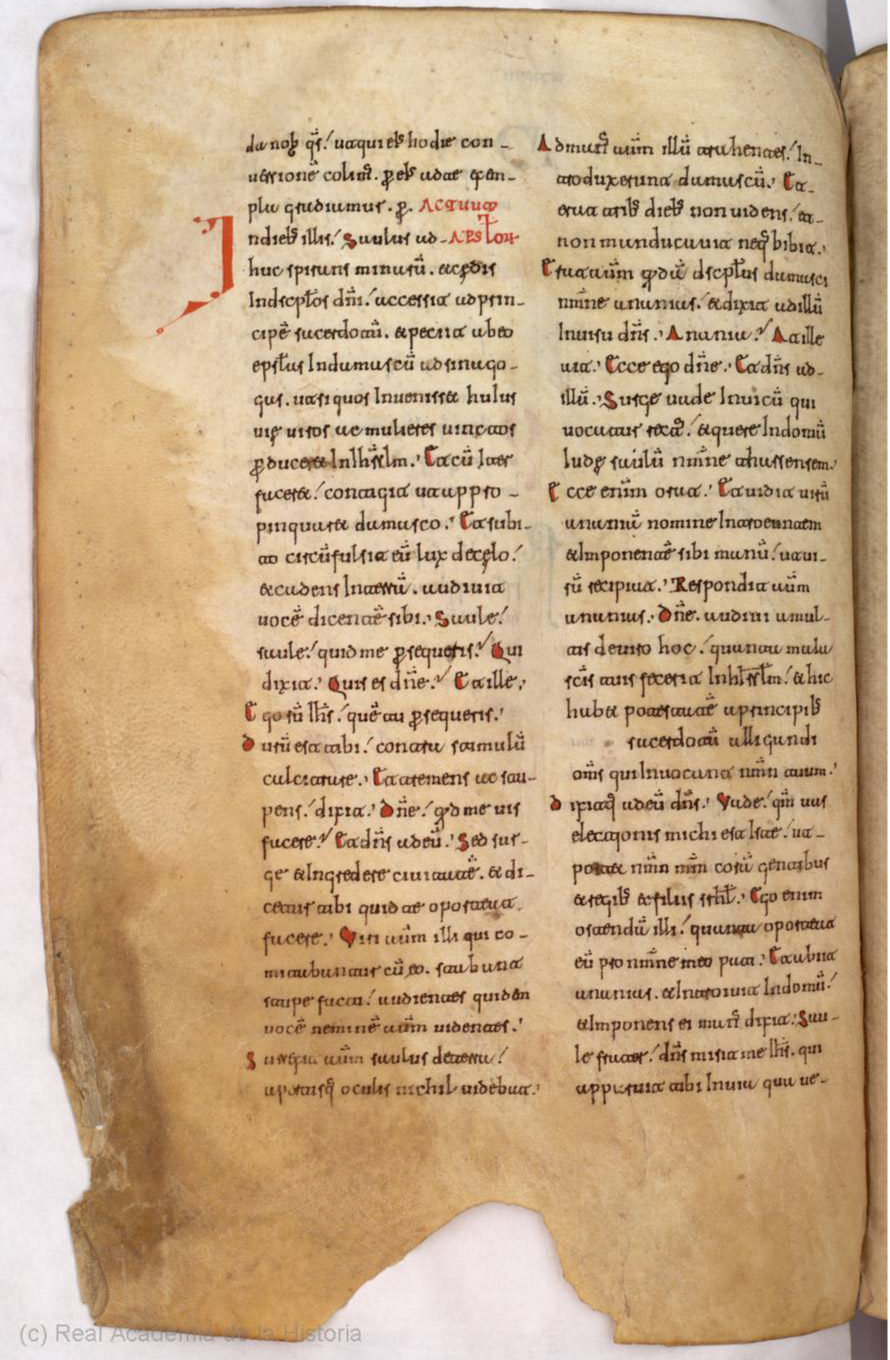 da nob qs ut qui ejus hodie con-
uersione colim. p ejs ad te exen-
pla gradiamur. p. Actuum
Indieb illis. Saulus ad- Apstlor
huc spirans minarū. et cędis
In dscptos dni. accessit ad prin-
cipē sacerdotū. et petiit ab eo
epstlas In damascū ad sinago-
gas. ut si quos Inuenisset hujus
uię uiros ac mulieres uinctos
pduceret In Ihrslm. Et cū Iter
faceret. contigit ut appro-
pinquaret damasco. Et subi-
to circūfulsit eū lux de cęlo.
et cadens In terrā. audiuit
uocē dicentē sibi. Saule.
saule. quid me psequeris. Qui
dixit. Quis es dne. Et ille.
Ego sū Ihs. quē tu psequeris.
durū est tibi. contra stimulū
calcitrare. Et tremens ac stu-
pens. dixit. Dne. qd me uis
facere. Et dns ad eū. Sed sur-
ge et Ingredere ciuitatē. et di-
cetur tibi quid te oporteat
facere. Uiri autm illi qui co-
mitabantur cū eo. stabant
stupefacti. audientes quidem
uocē neminē autm uidentes.
Surrexit autm saulus de terra.
apertisq oculis nichil uidebat.
Ad manū autm illū trahentes. In-
troduxerunt damascū. Et
erat trib dieb non uidens. et
non manducauit neq bibit.
Erat autm qdā dscptus damasci
nmne ananias. et dixit ad illū
In uisu dns. Anania. At ille
ait. Ecce ego dne. Et dns ad
illū. Surge uade In uicū qui
uocatur rectꝰ. et quere In domū
Iudę saulū nmne tharsensem.
Ecce enim orat. Et uidit uirū
ananiā nomine Introeuntem
et Imponentē sibi manū. ut ui-
sū recipiat. Respondit autm
ananias. Dne. audiui a mul-
tis de uiro hoc. quanta mala
scis tuis fecerit In Ihrslm. et hic
habet potestatē a principib
sacerdotū alligandi
oms qui Inuocant nmn tuum.
Dixitq ad eū dns. Uade. qm uas
electionis michi est Iste. ut
portet nmn mm corā gentibus
et regib et filiis srhl. Ego enim
ostendā illi. quanta oporteat
eū pro nmne meo pati. Et abiit
ananias. et Introiuit In domū.
et Imponens ei manū dixit. Sau-
le frater. dns misit me Ihs. qui
apparuit tibi In uia qua ue-